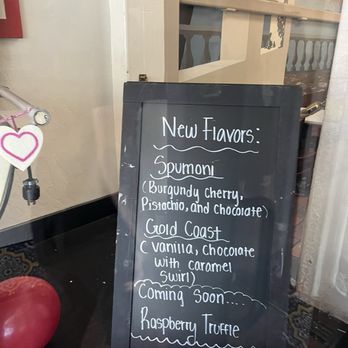 New Flavors:
Spumoni
(Burgundy cherry,
Pistachio, and Chocolate)
Gold Coast
( Vanilla, Chocolate
with caramel
Swirl)
Coming Soon....
Raspberry Truffle